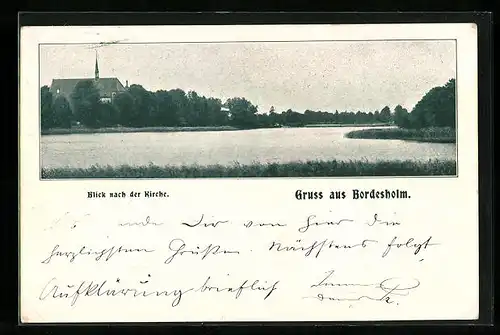 Blick nach der Kirche.
Gruss aus Bordesholm.
Dir von hier die
herzlichsten Grüße. Nächstens folgt
Aufklärung brieflich